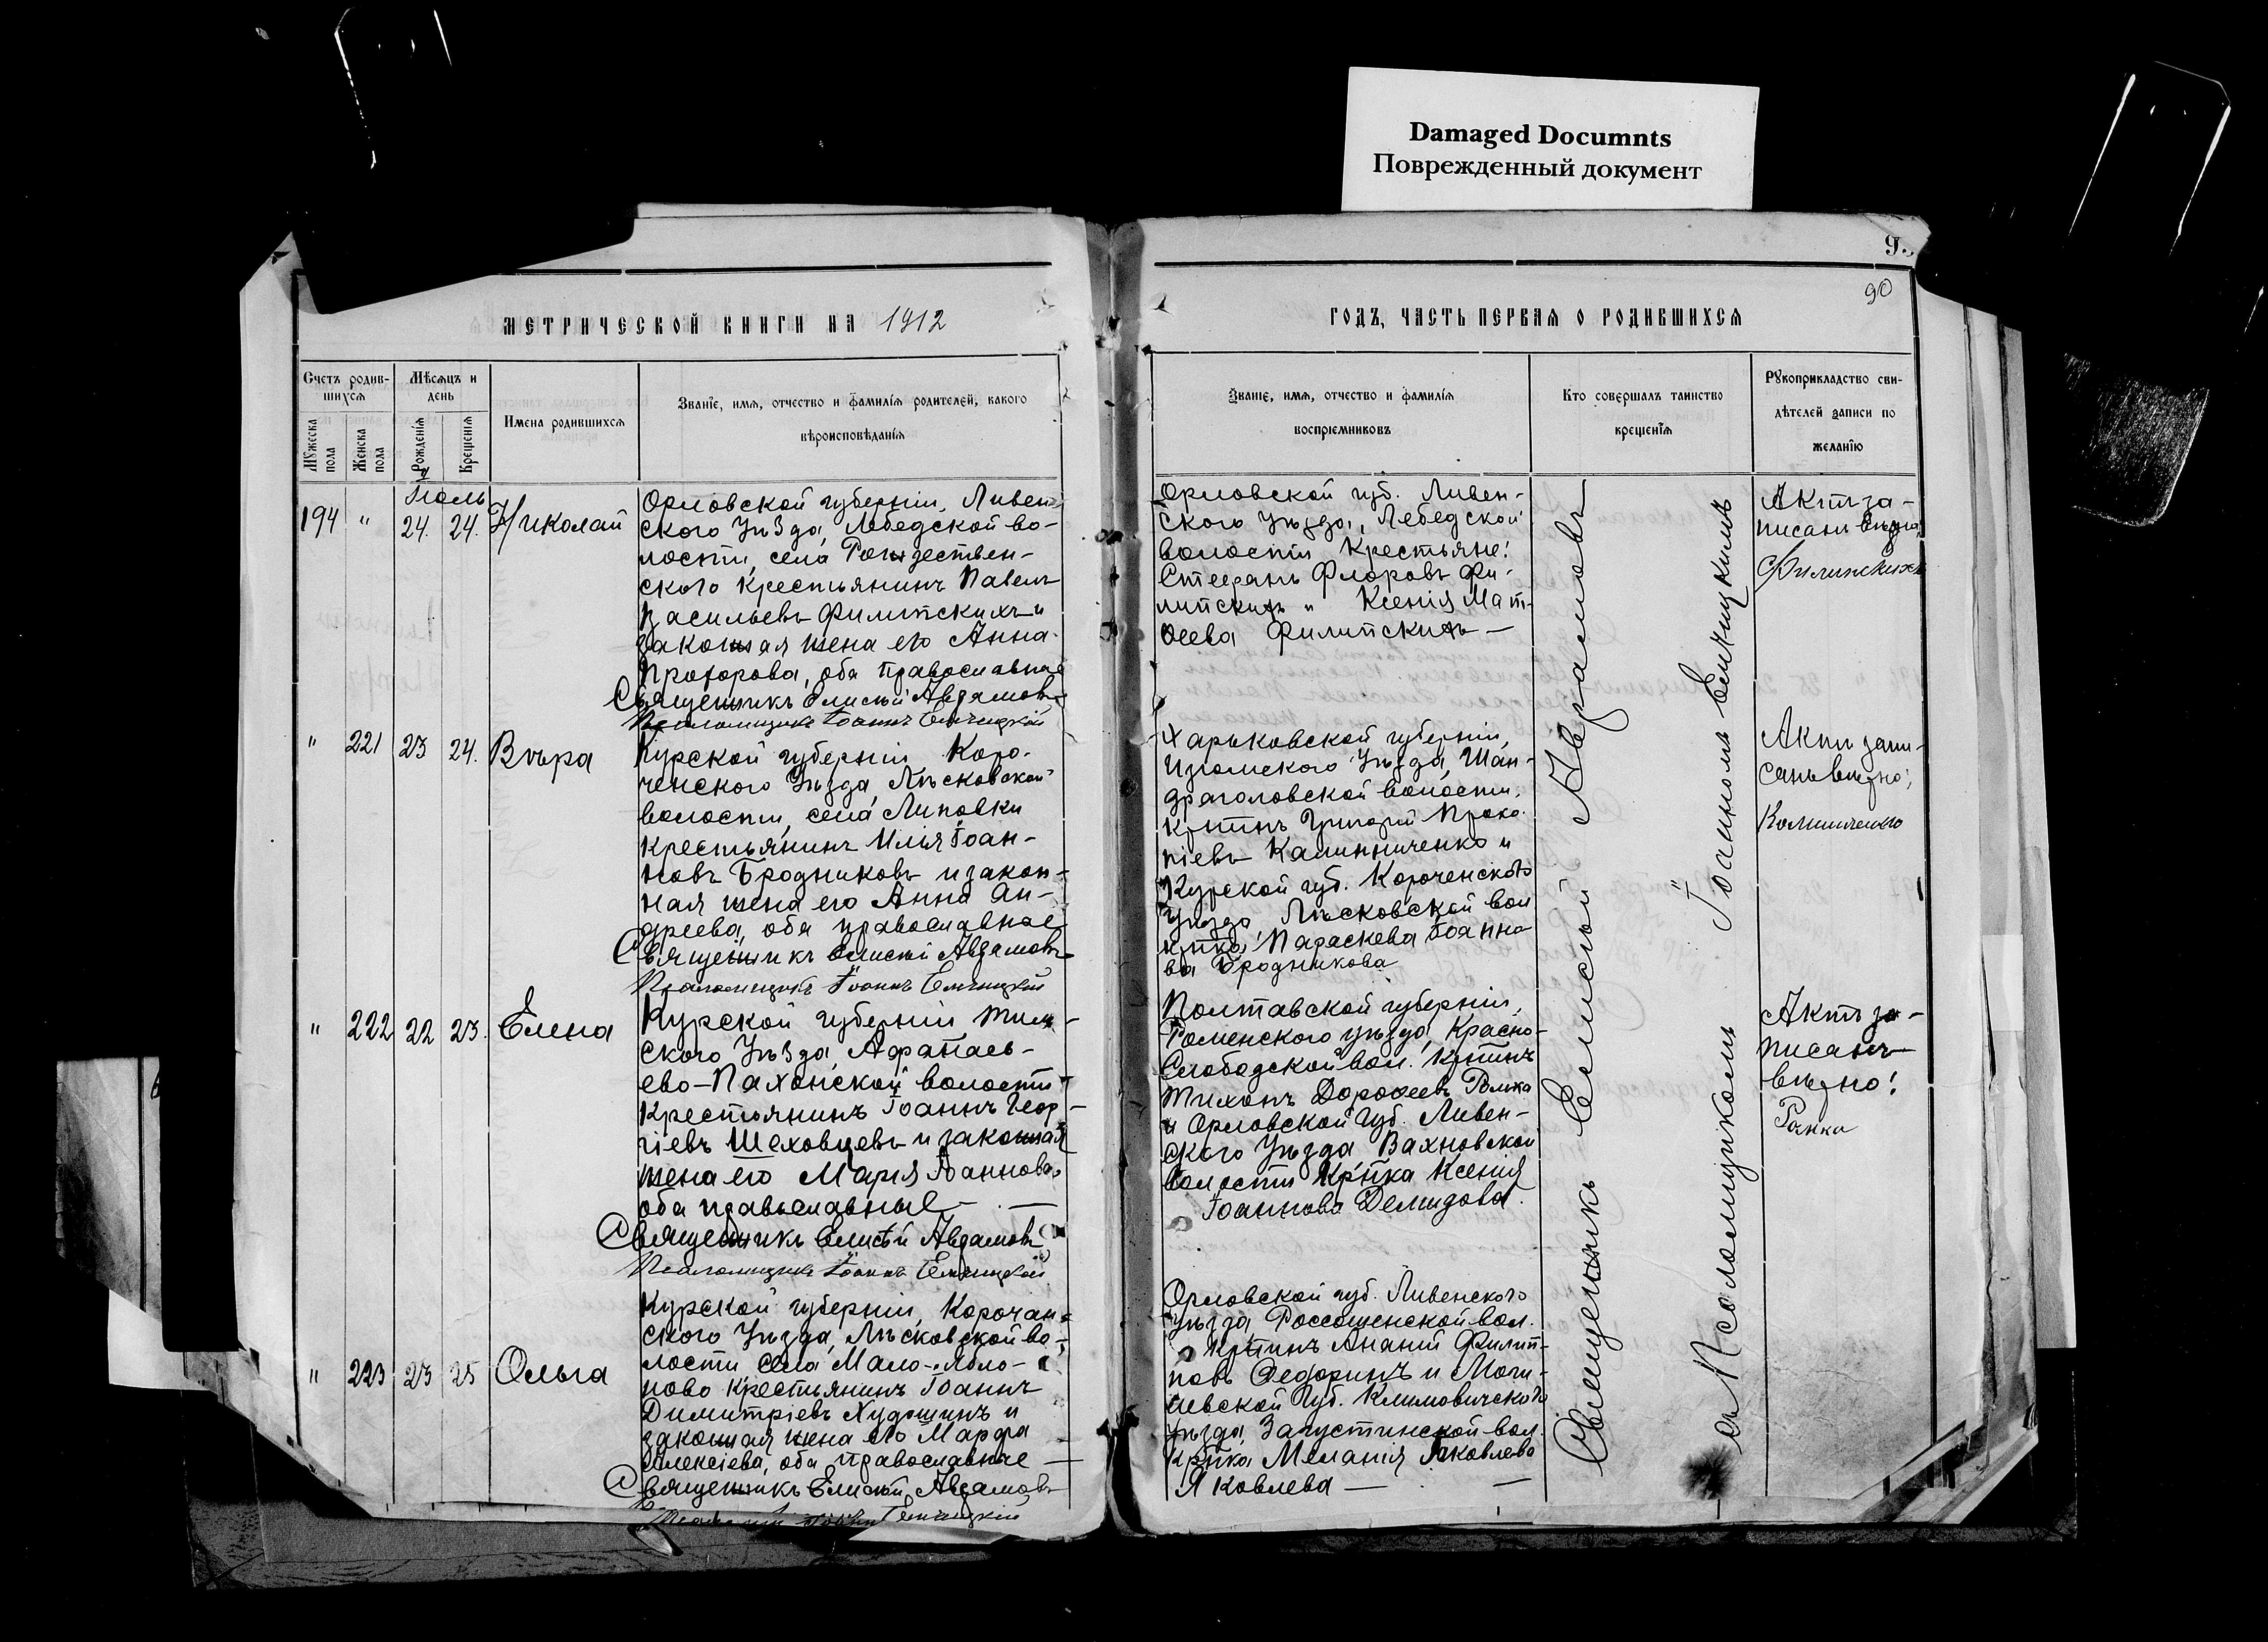 Damaged Documnts
Поврежденный документ
90
МЕТРИЧЕСКОЙ КНИГИ НА 1912
ГОДЪ, ЧАСТЬ ПЕРВАЯ О РОДИВШИХСЯ
Счетъ родив-
шихся
Мужеска пола
Женска пола
Мѣсяцъ и
день
Рожденія
Крещенія
Имена родившихся
Званіе, имя, отчество и фамилія родителей, какого
вѣроисповѣданія
Званіе, имя, отчество и фамилія
воспріемниковъ
Кто совершалъ таинство
крещенія
Рукоприкладство сви-
дѣтелей записи по
желанію
Июль
194 " 24. 24. Николай
Орловской губерніи, Ливен-
ского Уѣзда, Лебедской во-
лости, села Рождествен-
ского крестьянинъ Павелъ
Васильевъ Филипскихъ и
законная жена его Анна
Прохорова, оба православные
Священникъ Елисѣй Авдамовъ
Псаломщикъ Іоаннъ
Орловской губ. Ливен-
ского уѣзда, Лебедской
волости Крестьяне:
Стефанъ Флоровъ Фи-
липскихъ и Ксенія Мат-
ѳеева Филипскихъ —
Актъ за-
писанъ вѣрно
Филипскихъ
" 221 23 24. Вѣра
Курской губерніи, Коро-
ченского Уѣзда, Лѣсковской
волости, села Липовки
крестьянинъ Илья Іоан-
новъ Бродниковъ и закон-
ная жена его Анна Ан-
дреева, оба православные
Священникъ Елисѣй Авдамовъ
Псаломщикъ Іоаннъ
Харьковской губерніи,
Изюмского Уѣзда, Шан-
драголовской волости,
кртинъ Григорій Проко-
піевъ Калинниченко и
Курской губ. Короченского
уѣзда, Лѣсковской вол
крпка Параскева Іоанно
ва Бродникова
Актъ запи-
санъ вѣрно:
" 222 22 23. Елена
Курской губерніи Тим-
ского Уѣзда Афанась-
ево-Пахонской волости
крестьянинъ Іоаннъ Геор-
гіевъ Шеховцевъ и законная
жена его Марія Іоаннова
оба православные —
Священникъ Елисѣй Авдамовъ
Псаломщикъ Іоаннъ
Полтавской губерніи,
Роменского уѣзда, Красно-
Слободской вол. Кртинъ
Тихонъ Дороѳеевъ
и Орловской Губ. Ливен-
ского Уѣзда Вахновской
волости Крпка Ксенія
Іоаннова Демидова.
Актъ за-
писанъ
вѣрно!
" 223 23 25 Ольга
Курской губерніи, Корочан-
ского Уѣзда, Лѣсковской во-
лости села Мало-Ябло-
ново крестьянинъ Іоаннъ
Димитріевъ Худошинъ и
законная жена его Марфа
Алексіева, оба православные —
Священникъ Елисѣй Авдамовъ
Орловской губ. Ливенского
уѣзда Россошенской вол.
Кртинъ Ананій Филип-
повъ Ѳедоринъ и Моги-
левской Губ. Климовичского
уѣзда, Запустинской вол.
Крпка Меланія Яковлева
Яковлева —
Священникъ Елисѣй Авдамовъ
съ Псаломщикомъ Іоанномъ